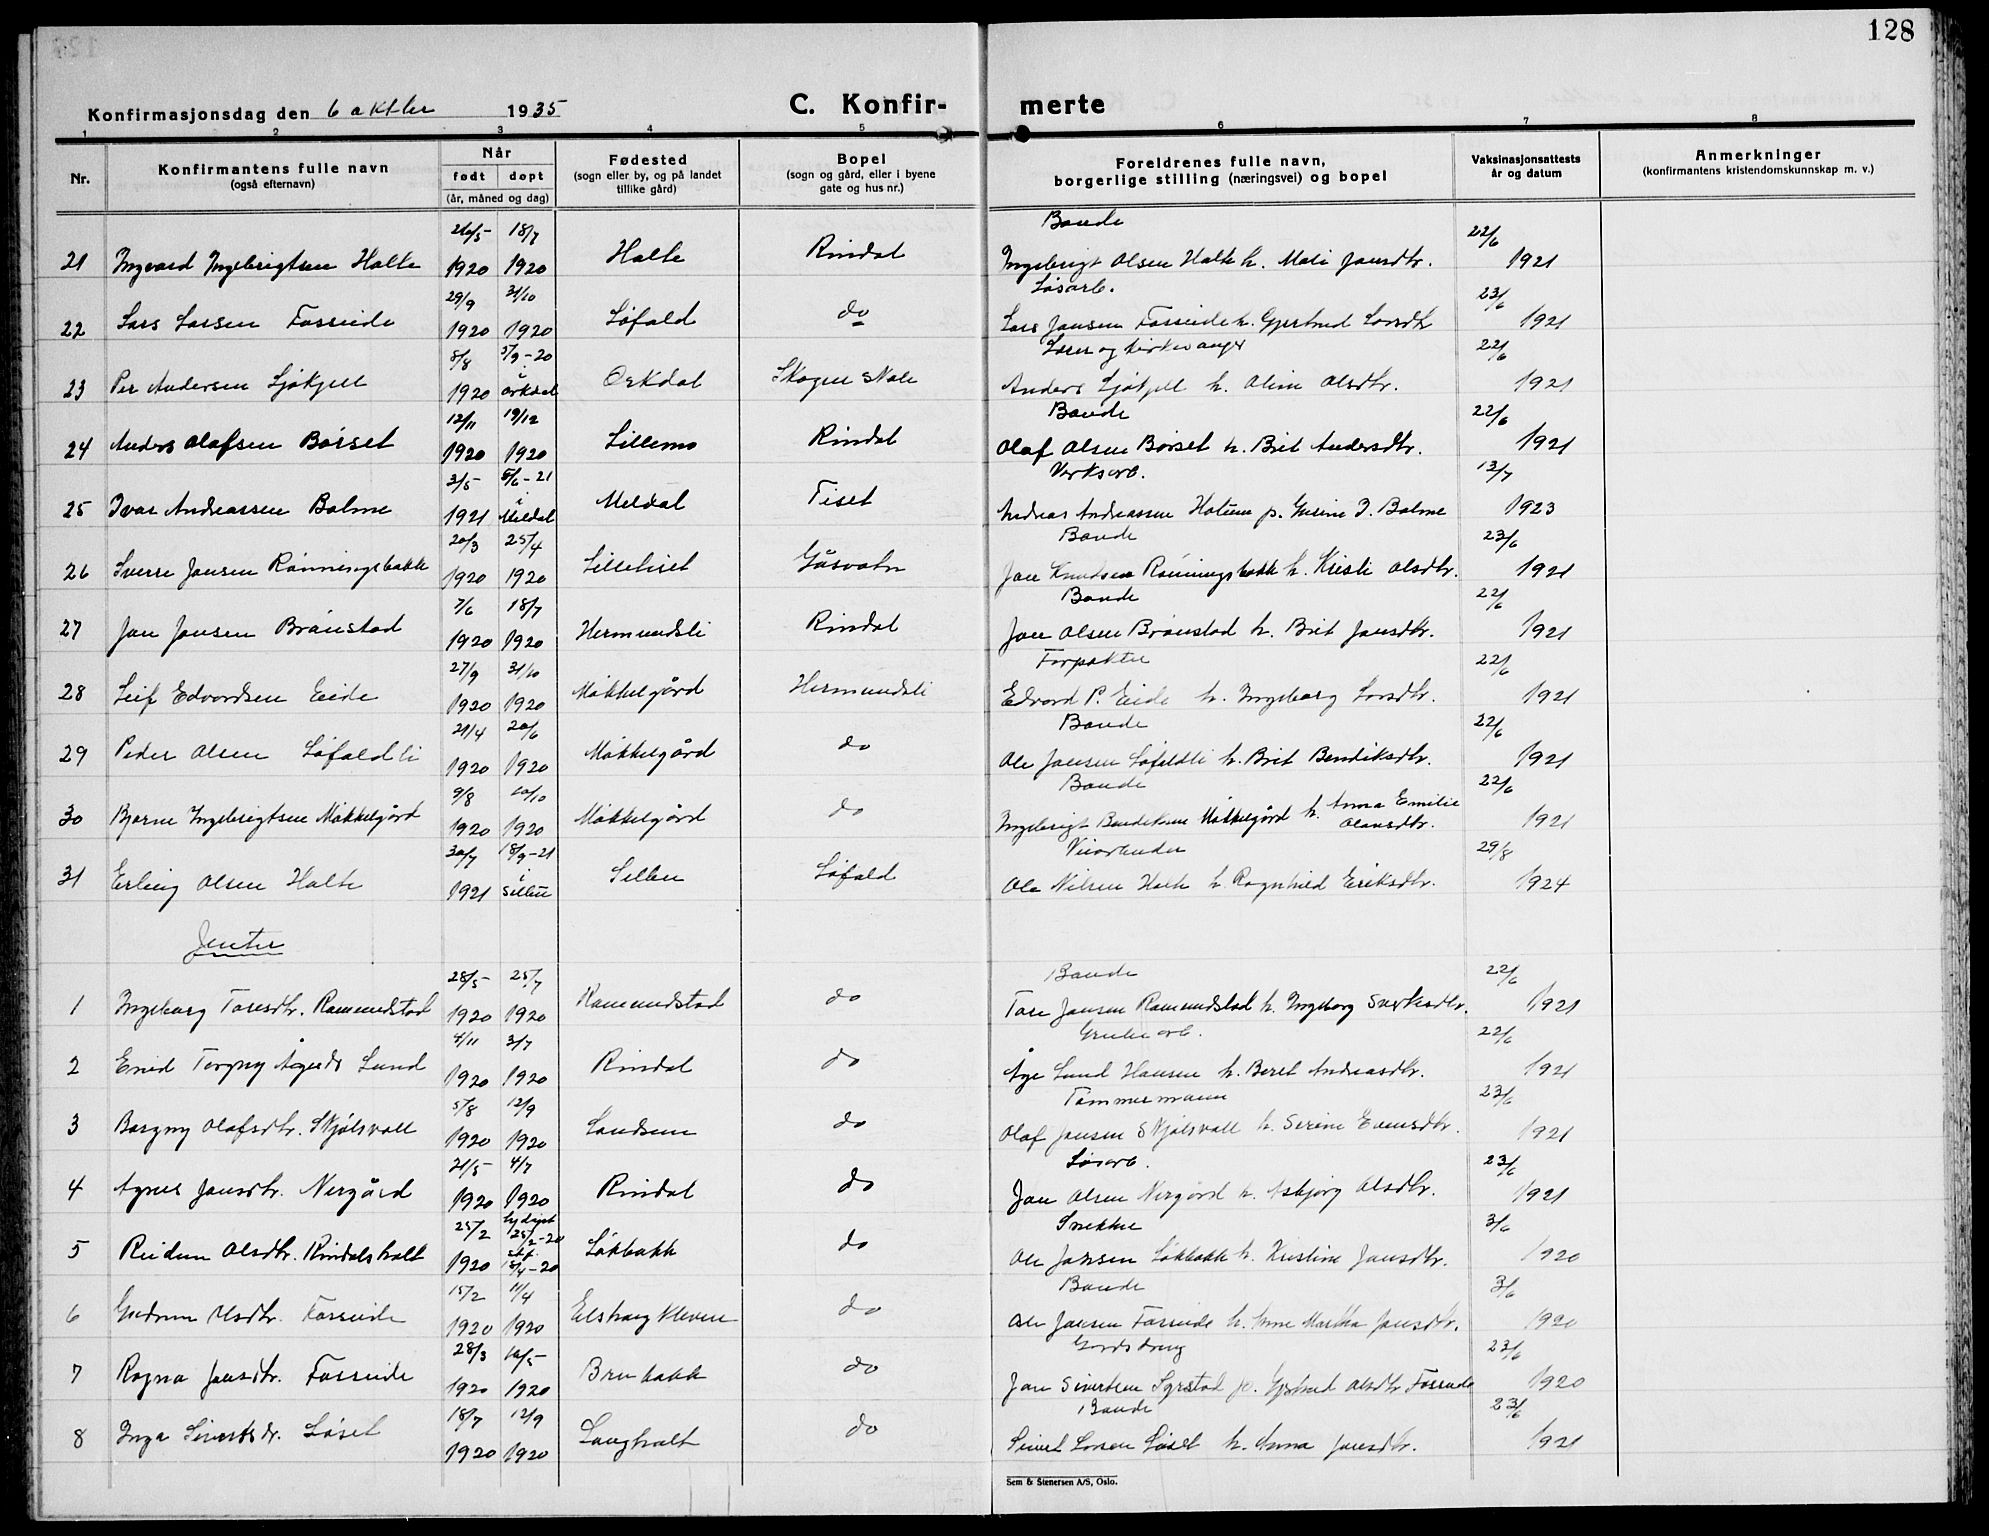 128
Konfirmasjonsdag den 6 oktber 1935
C. Konfir- merte
1 2 3 4 5 6 7 8
Nr.
Konfirmantens fulle navn
(også efternavn)
Når
født døpt
(år, måned og dag)
Fødested
(sogn eller by, og på landet
tillike gård)
Bopel
(sogn og gård, eller i byene
gate og hus nr.)
Foreldrenes fulle navn,
borgerlige stilling (næringsvei) og bopel
Vaksinasjonsattests
år og datum
Anmerkninger
(konfirmantens kristendomskunnskap m. v.)
26/5 18/7 Bonde 22/6
21 Ingvard Ingebrigtsen Halte 1920 1920 Halte Rindal Ingebrigt Olsen Halte h. Mali Jonsdtr. 1921
29/9 31/10 Løsarb. 23/6
22 Lars Larsen Fosseide 1920 1920 Løfald do Lars Jonsen Fosseide h. Gjertrud Larsdtr 1921
8/8 5/9-20 Lærer og kirkesanger 22/6
23 Per Andersen Sjøkjell 1920 i Orkdal Orkdal Skogen skole Anders Sjøkjell h. Oline Olsdtr. 1921
12/11 19/12 Bonde 22/6
24 Anders Olafsen Børset 1920 1920 Lillemo Rindal Olaf Olsen Børset h. Brit Andersdtr. 1921
3/5 5/6-21 Verksarb. 13/7
25 Ivar Andreassen Bolme 1921 i Meldal Meldal Tiset Andreas Andreassen Hatum p. Gurine I. Bolme 1923
20/3 25/4 Bonde 23/6
26 Sverre Jonsen Rønningsbakk 1920 1920 Lilletiset Gåsvatn Jon Knudsen Rønningsbakk h. Kristi Olsdtr. 1921
7/6 18/7 Bonde 22/6
27 Jon Jonsen Brønstad 1920 1920 Hermundsli Rindal Jon Olsen Brønstad h. Brit Jonsdtr. 1921
27/9 31/10 Forpakter 22/6
28 Leif Edvardsen Eide 1920 1920 Møkkelgård Hermundsli Edvard P. Eide h. Ingeborg Larsdtr. 1921
21/4 20/6 Bonde 22/6
29 Peder Olsen Løfaldli 1920 1920 Møkkelgård do Ole Jonsen Løfaldli h. Brit Bendiksdtr. 1921
9/8 10/10 Bonde 22/6
30 Bjarne Ingebrigtsen Møkkelgård 1920 1920 Møkkelgård do Ingebrigt Bendiksen Møkkelgård h. Anna Emilie Olausdtr. 1921
30/7 18/9-21 Veiarbeider 29/8
31 Erling Olsen Halte 1921 i Sellen Sellen Løfald Ole Nilsen Halte h. Ragnhild Eriksdtr. 1924
Jenter
28/5 25/7 Bonde 22/6
1 Ingeborg Toresdtr. Romundstad 1920 1920 Romundstad do Tore Jonsen Romundstad h. Ingeborg Sverksdtr. 1921
4/11 3/7 Grubearb. 22/6
2 Enid Torgny Ågesdtr Lund 1920 1920 Rindal do Åge Lund Hansen h. Beret Andreasdtr. 1921
5/8 12/9 Tømmermann 23/6
3 Borgny Olafsdtr. Skjølsvoll 1920 1920 Landsem do Olaf Jonsen Skjølsvoll h. Serine Evensdtr. 1921
21/5 4/7 Løsarb. 23/6
4 Agnes Jonsdtr. Nergård 1920 1920 Rindal do Jon Olsen Nergård h. Asbjørg Olsdtr. 1921
25/2 hj.døpt 25/2-20 Snekker 3/6
5 Reidun Olsdtr. Rindalsholt 1920 stf. 18/4-20 Løkbakk do Ole Johsen Løkbakk h. Kristine Jonsdtr. 1920
15/2 11/4 Bonde 3/6
6 Gudrun Olsdtr. Fosseide 1920 1920 Elshaug Kleven do Ole Jonsen Fosseide h. Anne Martha Jonsdtr. 1920
28/3 10/5 Gårdsdreng 23/6
7 Ragna Jonsdtr. Fosseide 1920 1920 Brubakk do Jon Sivertsen Syrstad p. Gjertrud Olsdtr Fosseide 1920
18/7 12/9 Bonde 23/6
8 Inga Sivertsdr. Løset 1920 1920 Langholt do Sivert Larsen Løset h. Anna Jonsdtr. 1921
Sem & Stenersen A/S, Oslo.